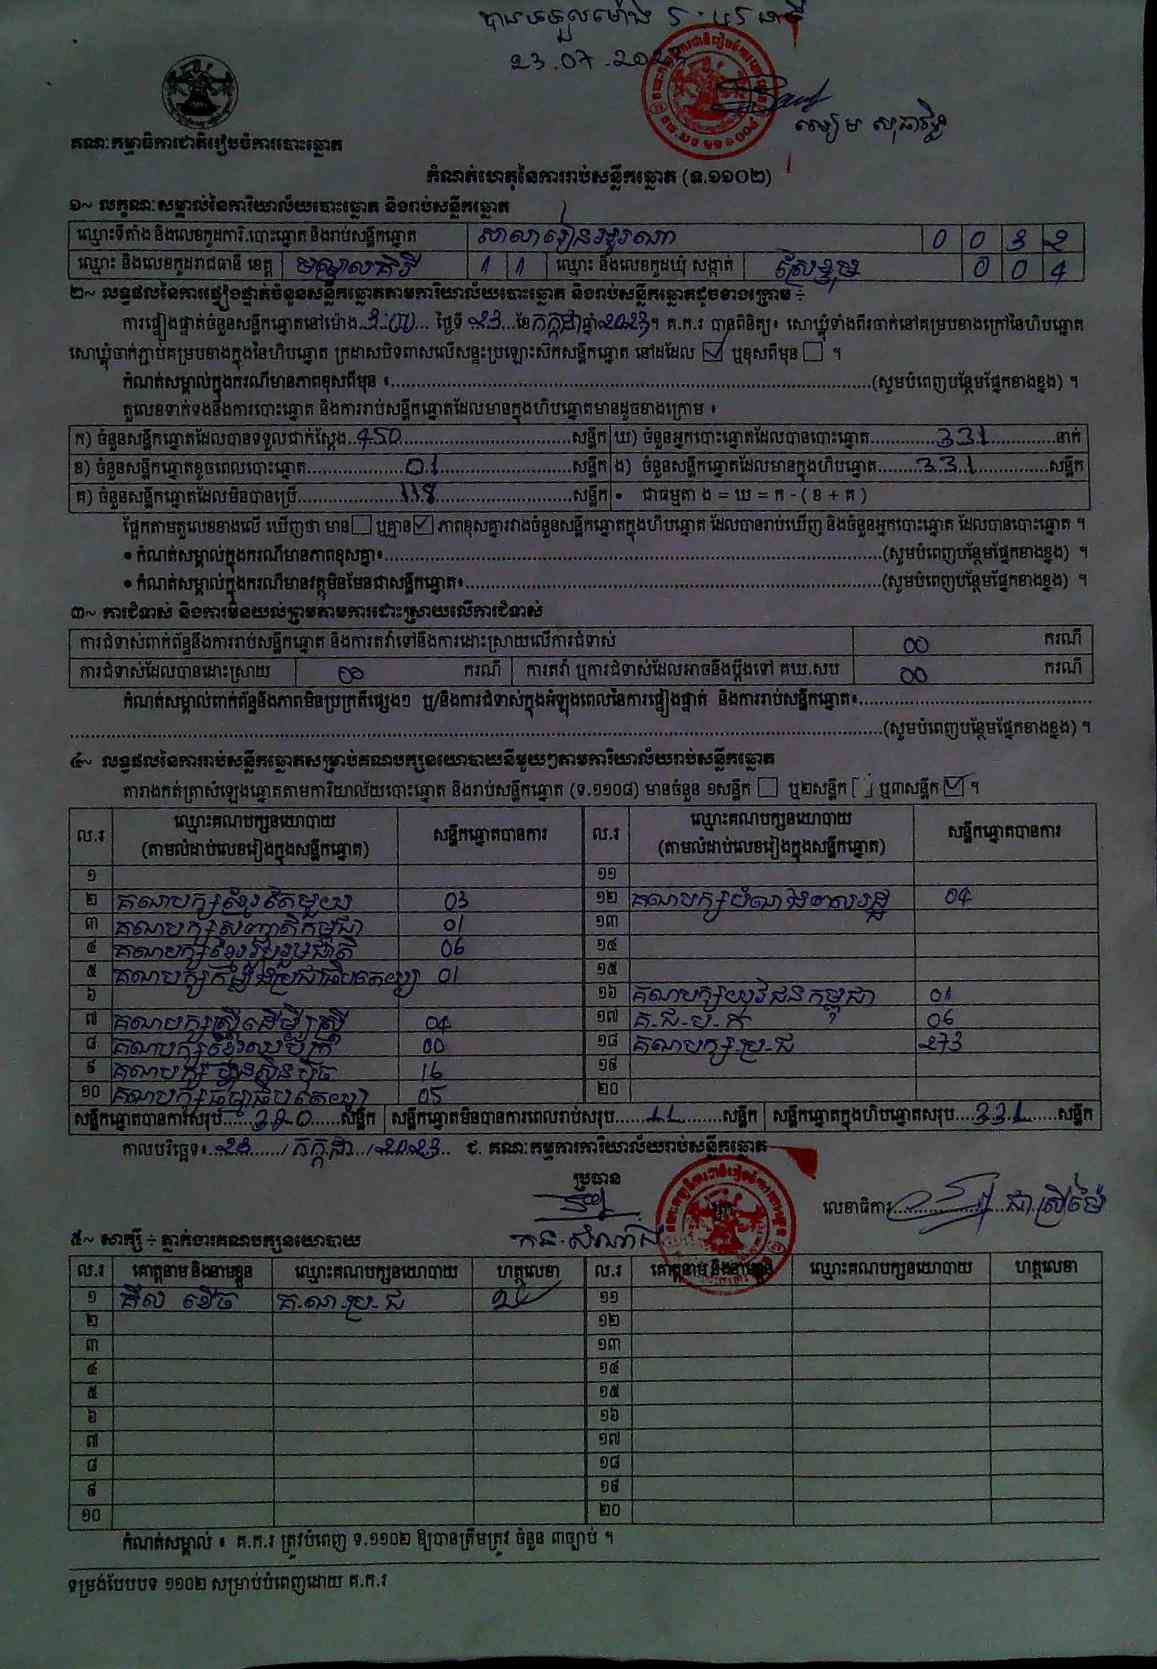 បានទទួលម៉ោង ៥:៤៥ នាទី
23.07.2023
គណៈកម្មាធិការជាតិរៀបចំការបោះឆ្នោត
កំណត់ហេតុនៃការរាប់សន្លឹកឆ្នោត (ទ.១១០២)
១~ លក្ខណៈសម្គាល់នៃការិយាល័យបោះឆ្នោត និងរាប់សន្លឹកឆ្នោត
ឈ្មោះទីតាំង និងលេខកូដការិ.បោះឆ្នោត និងរាប់សន្លឹកឆ្នោត សាលារៀន 0 0 3 2
ឈ្មោះ និងលេខកូដរាជធានី ខេត្ត មណ្ឌលគិរី 1 1 ឈ្មោះ និងលេខកូដឃុំ សង្កាត់ ស្រែខ្ទុម 0 0 4
២~ លទ្ធផលនៃការផ្ទៀងផ្ទាត់ចំនួនសន្លឹកឆ្នោតតាមការិយាល័យបោះឆ្នោត និងរាប់សន្លឹកឆ្នោតដូចខាងក្រោម ÷
ការផ្ទៀងផ្ទាត់ចំនួនសន្លឹកឆ្នោតនៅម៉ោង 3:00 ថ្ងៃទី 23 ខែ កក្កដា ឆ្នាំ 2023។ គ.ក.រ បានពិនិត្យ៖ សោឃ្លុំទាំងពីរចាក់នៅគម្របខាងក្រៅនៃហិបឆ្នោត
សោឃ្លុំចាក់ភ្ជាប់គម្របខាងក្នុងនៃហិបឆ្នោត ក្រដាសបិទពាសលើសន្ទះប្រឡោះស៊កសន្លឹកឆ្នោត នៅដដែល ☑ ឬខុសពីមុន ☐ ។
កំណត់សម្គាល់ក្នុងករណីមានភាពខុសពីមុន ៖..........(សូមបំពេញបន្ថែមផ្នែកខាងខ្នង) ។
តួលេខទាក់ទងនឹងការបោះឆ្នោត និងការរាប់សន្លឹកឆ្នោតដែលមានក្នុងហិបឆ្នោតមានដូចខាងក្រោម ៖
ក) ចំនួនសន្លឹកឆ្នោតដែលបានទទួលជាក់ស្តែង..450..សន្លឹក ឃ) ចំនួនអ្នកបោះឆ្នោតដែលបានបោះឆ្នោត..331..នាក់
ខ) ចំនួនសន្លឹកឆ្នោតខូចពេលបោះឆ្នោត..01..សន្លឹក ង) ចំនួនសន្លឹកឆ្នោតដែលមានក្នុងហិបឆ្នោត..331..សន្លឹក
គ) ចំនួនសន្លឹកឆ្នោតដែលមិនបានប្រើ..118..សន្លឹក • ជាធម្មតា ង = ឃ = ក - ( ខ + គ )
ផ្អែកតាមតួលេខខាងលើ ឃើញថា មាន ☐ ឬគ្មាន ☑ ភាពខុសគ្នារវាងចំនួនសន្លឹកឆ្នោតក្នុងហិបឆ្នោត ដែលបានរាប់ឃើញ និងចំនួនអ្នកបោះឆ្នោត ដែលបានបោះឆ្នោត ។
• កំណត់សម្គាល់ក្នុងករណីមានភាពខុសគ្នា៖..........(សូមបំពេញបន្ថែមផ្នែកខាងខ្នង) ។
• កំណត់សម្គាល់ក្នុងករណីមានវត្ថុមិនមែនជាសន្លឹកឆ្នោត៖..........(សូមបំពេញបន្ថែមផ្នែកខាងខ្នង) ។
៣~ ការជំទាស់ និងការមិនយល់ព្រមតាមការដោះស្រាយលើការជំទាស់
ការជំទាស់ពាក់ព័ន្ធនឹងការរាប់សន្លឹកឆ្នោត និងការតវ៉ាទៅនឹងការដោះស្រាយលើការជំទាស់ 00 ករណី
ការជំទាស់ដែលបានដោះស្រាយ 00 ករណី ការតវ៉ា ឬការជំទាស់ដែលអាចនឹងប្តឹងទៅ គឃ.សប 00 ករណី
កំណត់សម្គាល់ពាក់ព័ន្ធនឹងភាពមិនប្រក្រតីផ្សេងៗ ឬ/និងការជំទាស់ក្នុងអំឡុងពេលនៃការផ្ទៀងផ្ទាត់ និងការរាប់សន្លឹកឆ្នោត៖..........
..........(សូមបំពេញបន្ថែមផ្នែកខាងខ្នង) ។
៤~ លទ្ធផលនៃការរាប់សន្លឹកឆ្នោតសម្រាប់គណបក្សនយោបាយនីមួយៗតាមការិយាល័យរាប់សន្លឹកឆ្នោត
តារាងកត់ត្រាសំឡេងឆ្នោតតាមការិយាល័យបោះឆ្នោត និងរាប់សន្លឹកឆ្នោត (ទ.១១០៨) មានចំនួន ១សន្លឹក ☐ ឬ២សន្លឹក ☐ ឬ៣សន្លឹក ☑ ។
ល.រ ឈ្មោះគណបក្សនយោបាយ (តាមលំដាប់លេខរៀងក្នុងសន្លឹកឆ្នោត) សន្លឹកឆ្នោតបានការ ល.រ ឈ្មោះគណបក្សនយោបាយ (តាមលំដាប់លេខរៀងក្នុងសន្លឹកឆ្នោត) សន្លឹកឆ្នោតបានការ
១ ១១
២ គណបក្សខ្មែរតែមួយ 03 ១២ គណបក្ស 04
៣ គណបក្សសញ្ជាតិកម្ពុជា 01 ១៣
៤ គណបក្សខ្មែររួបរួមជាតិ 06 ១៤
៥ គណបក្សកម្លាំងប្រជាធិបតេយ្យ 01 ១៥
៦ ១៦ គណបក្សយុវជនកម្ពុជា 01
៧ គណបក្សស្ត្រីដើម្បីស្ត្រី 04 ១៧ គ.ជ.ប.ក 06
៨ គណបក្សខ្មែរឈប់ក្រ 00 ១៨ គណបក្ស.ប្រ.ជ 273
៩ គណបក្សហ៊្វុនស៊ិនប៉ិច 16 ១៩
១០ គណបក្សធម្មាធិបតេយ្យ 05 ២០
សន្លឹកឆ្នោតបានការសរុប..320..សន្លឹក សន្លឹកឆ្នោតមិនបានការពេលរាប់សរុប..11..សន្លឹក សន្លឹកឆ្នោតក្នុងហិបឆ្នោតសរុប..331..សន្លឹក
កាលបរិច្ឆេទ៖..23../ កក្កដា /2023.. ជ. គណៈកម្មការការិយាល័យរាប់សន្លឹកឆ្នោត
ប្រធាន
លេខាធិការ.......... ជា ស្រីម៉ៃ
៥~ សាក្សី ÷ ភ្នាក់ងារគណបក្សនយោបាយ
ល.រ គោត្តនាម និងនាមខ្លួន ឈ្មោះគណបក្សនយោបាយ ហត្ថលេខា ល.រ គោត្តនាម និងនាមខ្លួន ឈ្មោះគណបក្សនយោបាយ ហត្ថលេខា
១ គ.ណ.ប្រ.ជ ១១
២ ១២
៣ ១៣
៤ ១៤
៥ ១៥
៦ ១៦
៧ ១៧
៨ ១៨
៩ ១៩
១០ ២០
កំណត់សម្គាល់ ៖ គ.ក.រ ត្រូវបំពេញ ទ.១១០២ ឱ្យបានត្រឹមត្រូវ ចំនួន ៣ច្បាប់ ។
ទម្រង់បែបបទ ១១០២ សម្រាប់បំពេញដោយ គ.ក.រ